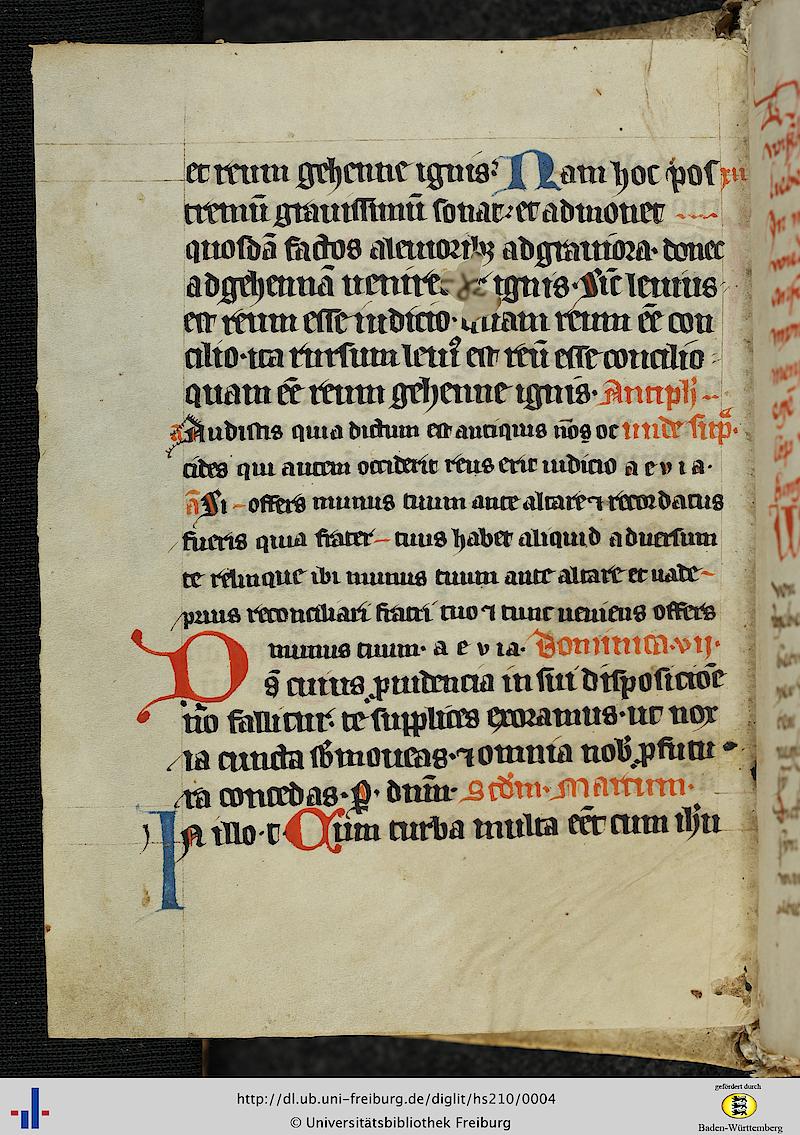 et reum gehenne ignis? Nam hoc pos xii
tremū grauissimū sonat: et admonet
quosdā factos aleuioribꝫ adgrauiora. donec
adgehennā uenire ignis. Sic̄ leuius
est reum esse iudicio. quam reum eē̄ con
cilio. ita rursum leui⁹ est reū esse concilio
quam eē̄ reum gehenne ignis. Antiph
Audistis quia dictum est antiquis nō oc unde supͣ.
cides qui autem occiderit reus erit iudicio a e v i a.
ā Si offers munus tuum ante altare ⁊ recordatus
fueris quia frater tuus habet aliquid aduersum
te relinque ibi munus tuum ante altare et uade
prius reconciliari fratri tuo ⁊ tunc ueniens offers
munus tuum. a e v ia. Dominica. vij.
Ds̄ cuius ꝓuidencia in sui disposicōe
nō fallitur. te supplices exoramus. ut nox
ia cuncta sb̄moueas. ⁊ omnia nob̄ ꝓfutu
ra concedas. ꝑ. dnm̄. Scd̄m. Marcum.
In illo. t. Cum turba multa eēt cum ihū
http://dl.ub.uni-freiburg.de/diglit/hs210/0004
© Universitätsbibliothek Freiburg
gefördert durch
Baden-Württemberg